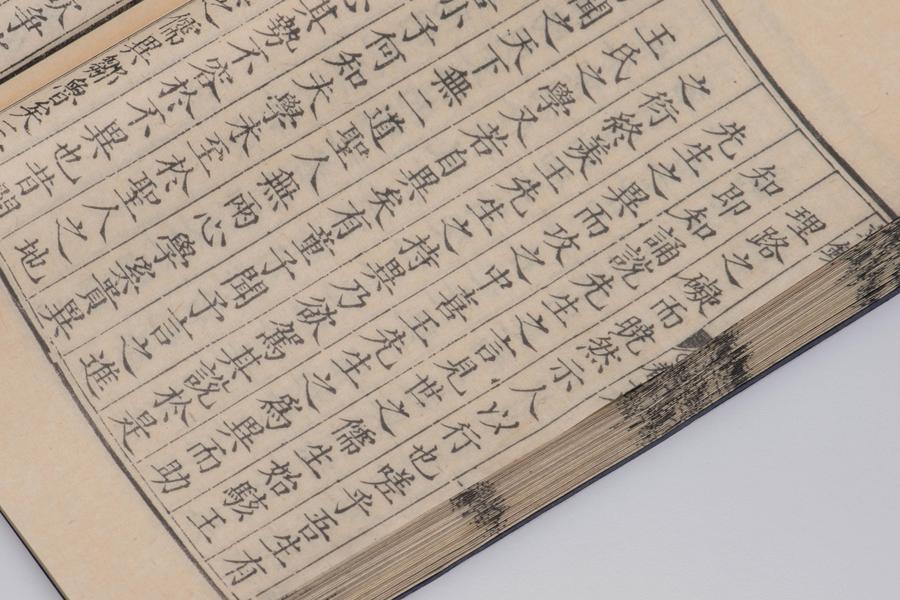 理路之礙而曉然示人以行也嗟乎吾生有
知即知誦說先生之言見世之儒生始駭王
先生之異而攻之中喜王先生之爲異而助
之衍終羡王先生之持異乃欲駕其說於是
王氏之學又若自異矣有董子聞予言之進
聞之天下無二道聖人無兩心學寀貫異
小子何知夫學未至於聖人之地
心其勢不容於不異也昔
儒異鄒魯矣